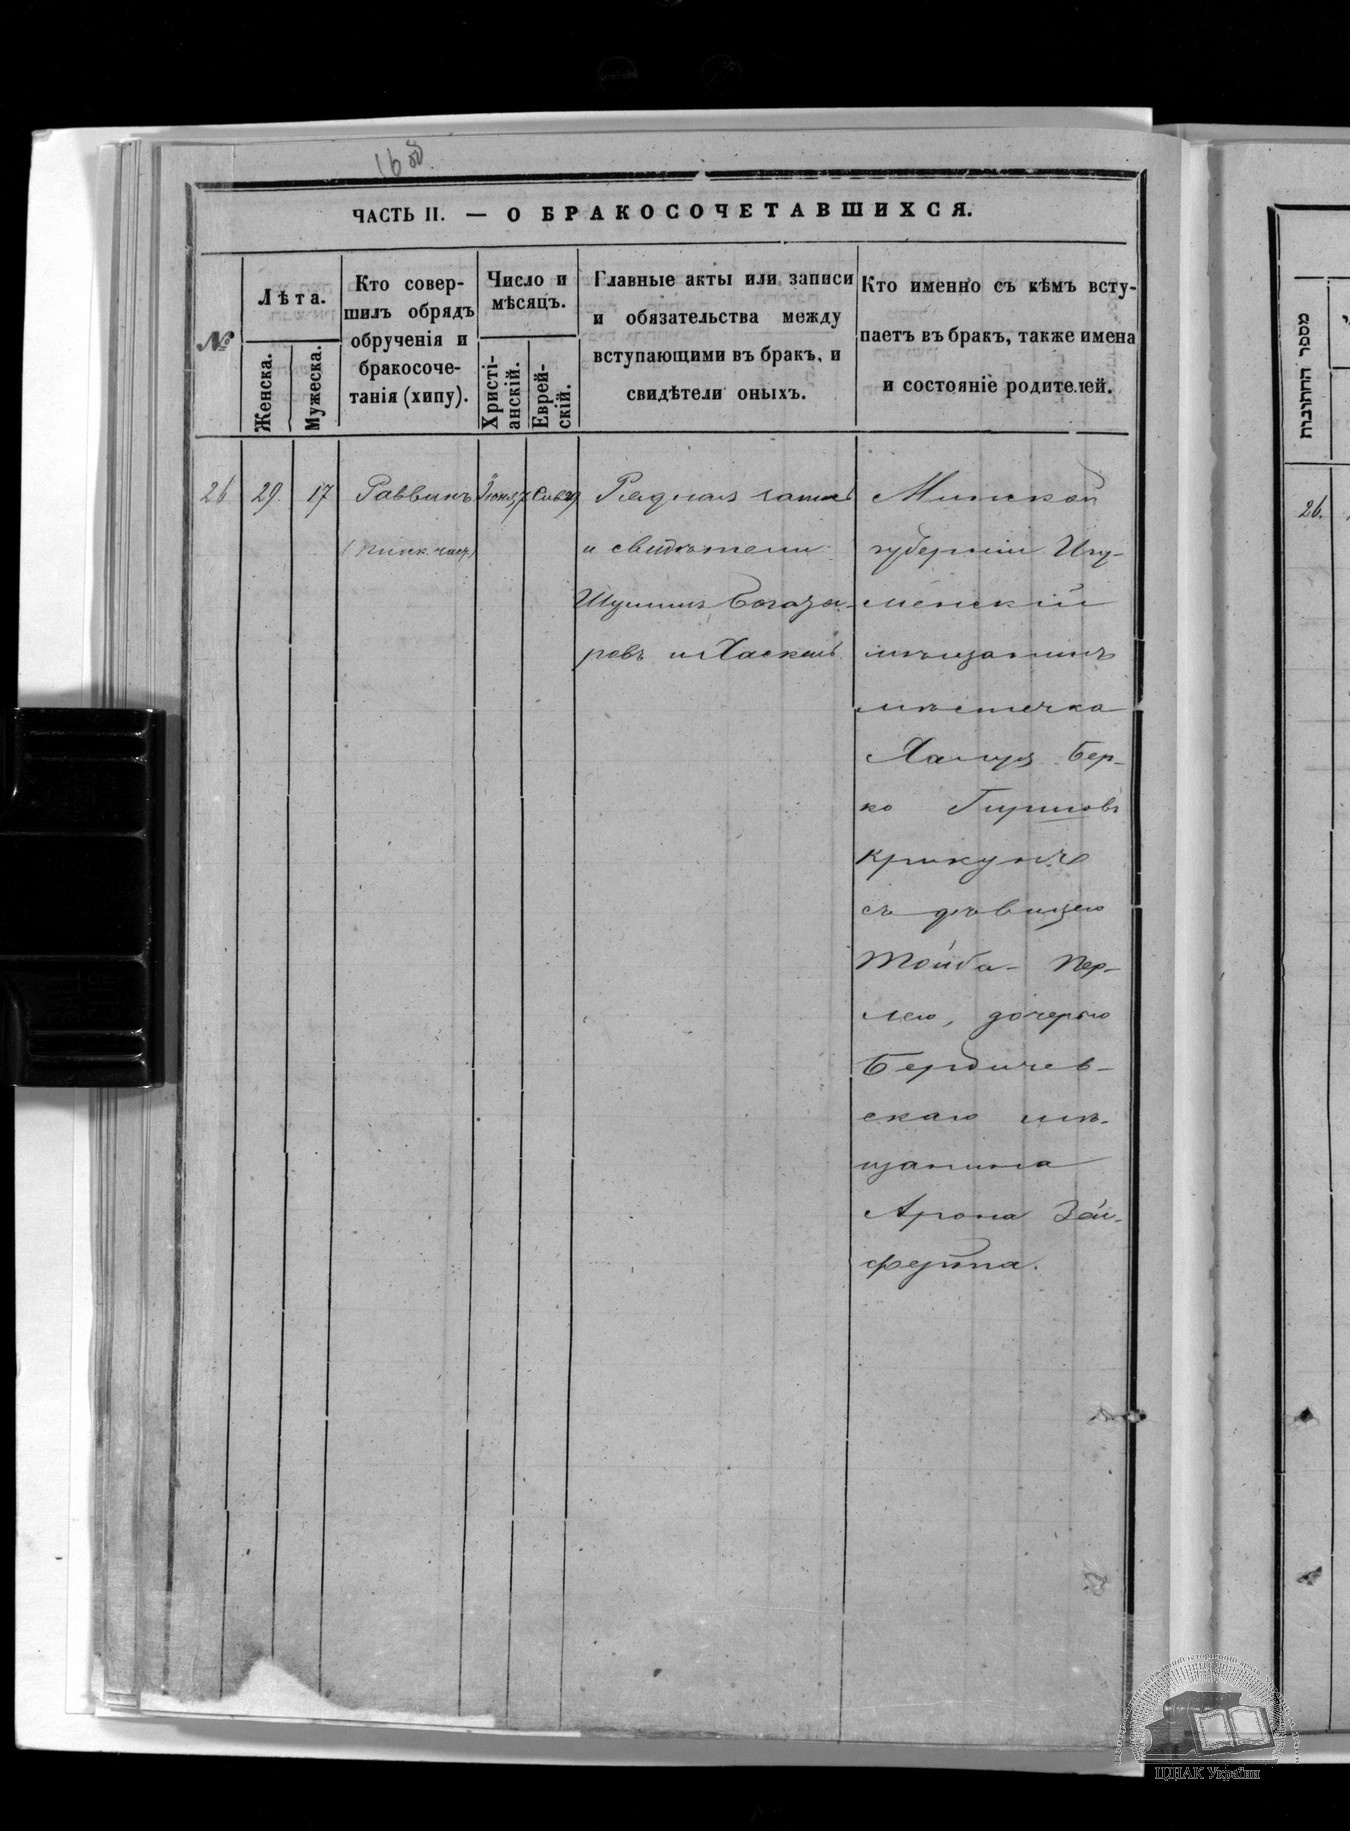 168
ЧАСТЬ II. — О БРАКОСОЧЕТАВШИХСЯ.
№
Лѣта.
Женска.
Мужеска.
Кто совер-
шилъ обрядъ
обрученія и
бракосоче-
танія (хипу).
Число и
мѣсяцъ.
Христі-
анскій.
Еврей-
скій.
Главные акты или записи
и обязательства между
вступающими въ брак, и
свидѣтели оныхъ.
Кто именно съ кѣмъ всту-
паетъ въ бракъ, также имена
и состояніе родителей.
26
29.
17
Раввинъ
Рядная запись
и свидѣтели
ровъ и Хаскель
Минской
губерніи Игу-
менскій
мѣщанинъ
мѣстечка
Бер-
ко Гиршовъ
Крикунъ
съ дѣвицею
Тойба- Пер-
лею, дочерью
Бердичев-
скаго мѣ-
щанина
Арона Зай-
מספר החתונות
26.
ЦДІАК України